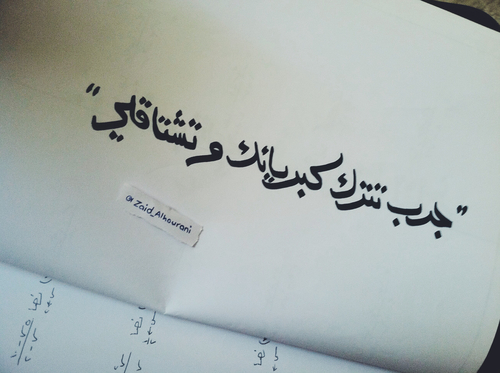 "جرب تترك كبريائك و تشتاقلي"
@Zaid_Alhourani